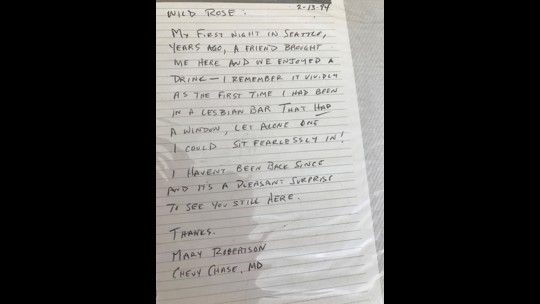 2-13-94
WILD ROSE:
MY FIRST NIGHT IN SEATTLE,
YEARS AGO, A FRIEND BROUGHT
ME HERE AND WE ENJOYED A
DRINK — I REMEMBER IT VIVIDLY
AS THE FIRST TIME I HAD BEEN
IN A LESBIAN BAR THAT HAD
A WINDOW, LET ALONE ONE
I COULD SIT FEARLESSLY IN!
I HAVEN'T BEEN BACK SINCE
AND ITS A PLEASANT SURPRISE
TO SEE YOU STILL HERE.
THANKS.
MARY ROBERTSON
CHEVY CHASE, MD